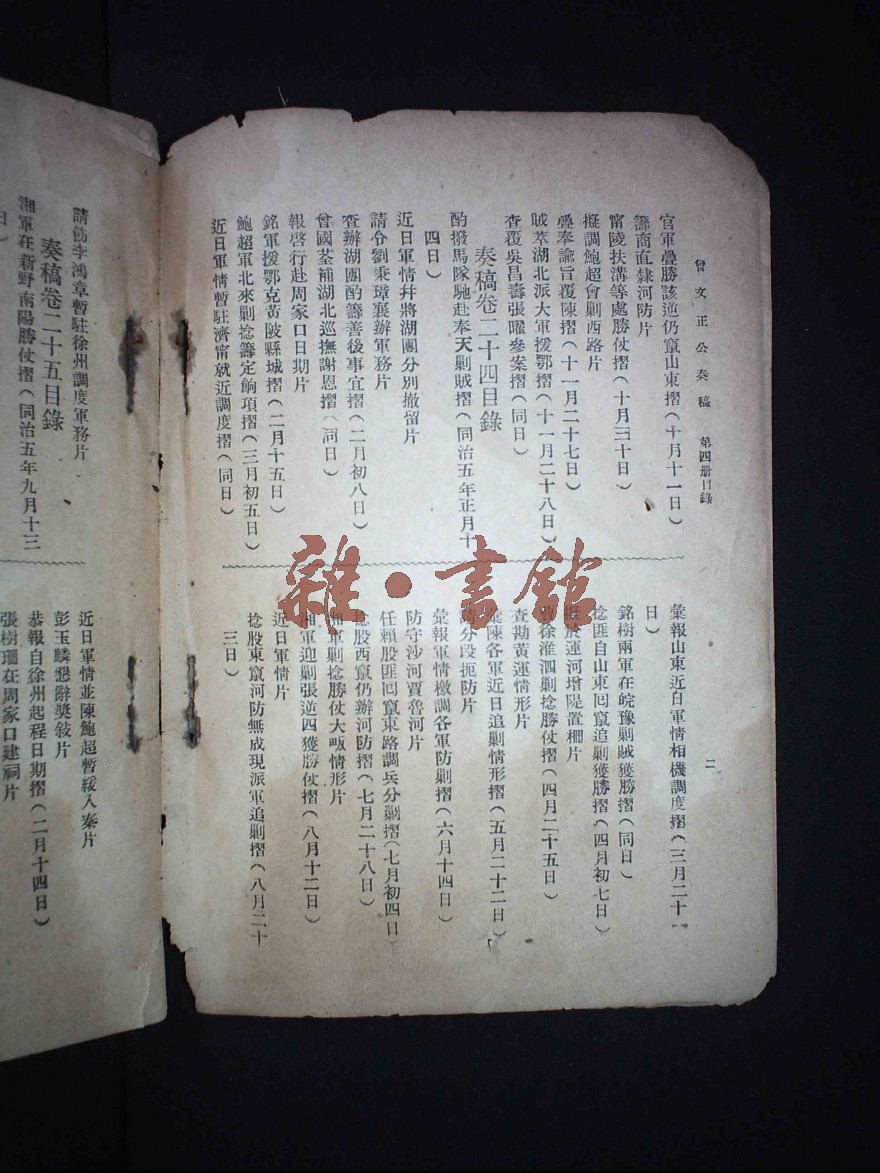 曾文正公奏稿　第四册目錄
二
官軍疊勝該逆仍竄山東摺（十月十一日）
籌商直隸河防片
甯陵扶溝等處勝仗摺（十月三十日）
擬調鮑超會剿西路片
疊奉諭旨覆陳摺（十一月二十七日）
賊萃湖北派大軍援鄂摺（十一月二十八日）
查覆吳昌壽張曜參案摺（同日）
奏稿卷二十四目錄
酌撥馬隊馳赴奉天剿賊摺（同治五年正月十
四日）
近日軍情幷將湖團分別撤留片
請令劉秉璋襄辦軍務片
查辦湖團酌籌善後事宜摺（二月初八日）
曾國荃補湖北巡撫謝恩摺（同日）
報啓行赴周家口日期片
銘軍援鄂克黃陂縣城摺（二月十五日）
鮑超軍北來剿捻籌定餉項摺（三月初五日）
近日軍情暫駐濟甯就近調度摺（同日）
彙報山東近日軍情相機調度摺（三月二十一
日）
銘樹兩軍在皖豫剿賊獲勝摺（同日）
捻匪自山東囘竄追剿獲勝摺（四月初七日）
於運河增隄置柵片
曹徐淮泗剿捻勝仗摺（四月二十五日）
查勘黃運情形片
彙陳各軍近日追剿情形摺（五月二十二日）
分段扼防片
彙報軍情檄調各軍防剿摺（六月十四日）
防守沙河賈魯河片
任賴股匪囘竄東路調兵分剿摺（七月初四日）
捻股西竄仍辦河防摺（七月二十八日）
湘軍剿捻勝仗大畈情形片
湘軍迎剿張逆四獲勝仗摺（八月十二日）
近日軍情片
捻股東竄河防無成現派軍追剿摺（八月二十
三日）
請飭李鴻章暫駐徐州調度軍務片
奏稿卷二十五目錄
湘軍在新野南陽勝仗摺（同治五年九月十三
日）
近日軍情並陳鮑超暫緩入秦片
彭玉麟懇辭獎敍片
恭報自徐州起程日期摺（二月十四日）
張樹珊在周家口建祠片
雜·書館